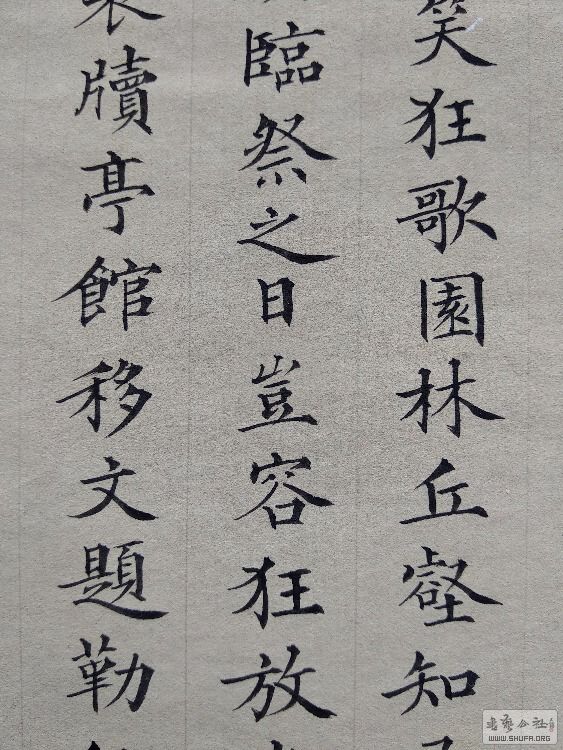 笑狂歌園林丘壑知
臨祭之日豈容狂放
牘亭館移文題勒
書藝公社
WWW.SHUFA.ORG